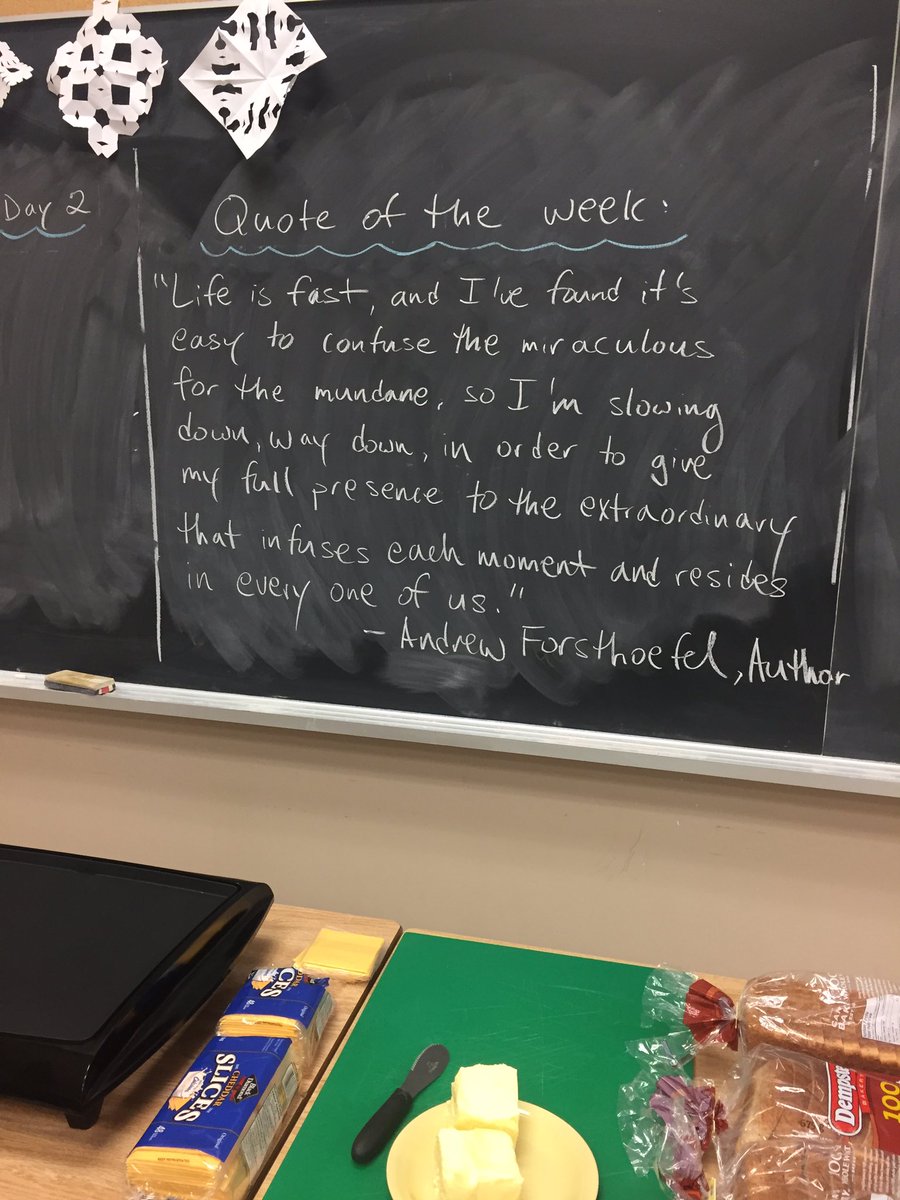 Day 2
Quote of the week:
"Life is fast, and I've found it's
easy to confuse the miraculous
for the mundane, so I'm slowing
down, way down, in order to give
my full presence to the extraordinary
that infuses each moment and resides
in every one of us."
- Andrew Forsthoefel, Author
SLICES
CHEDDAR
SLICES
Original
Dempster's
100